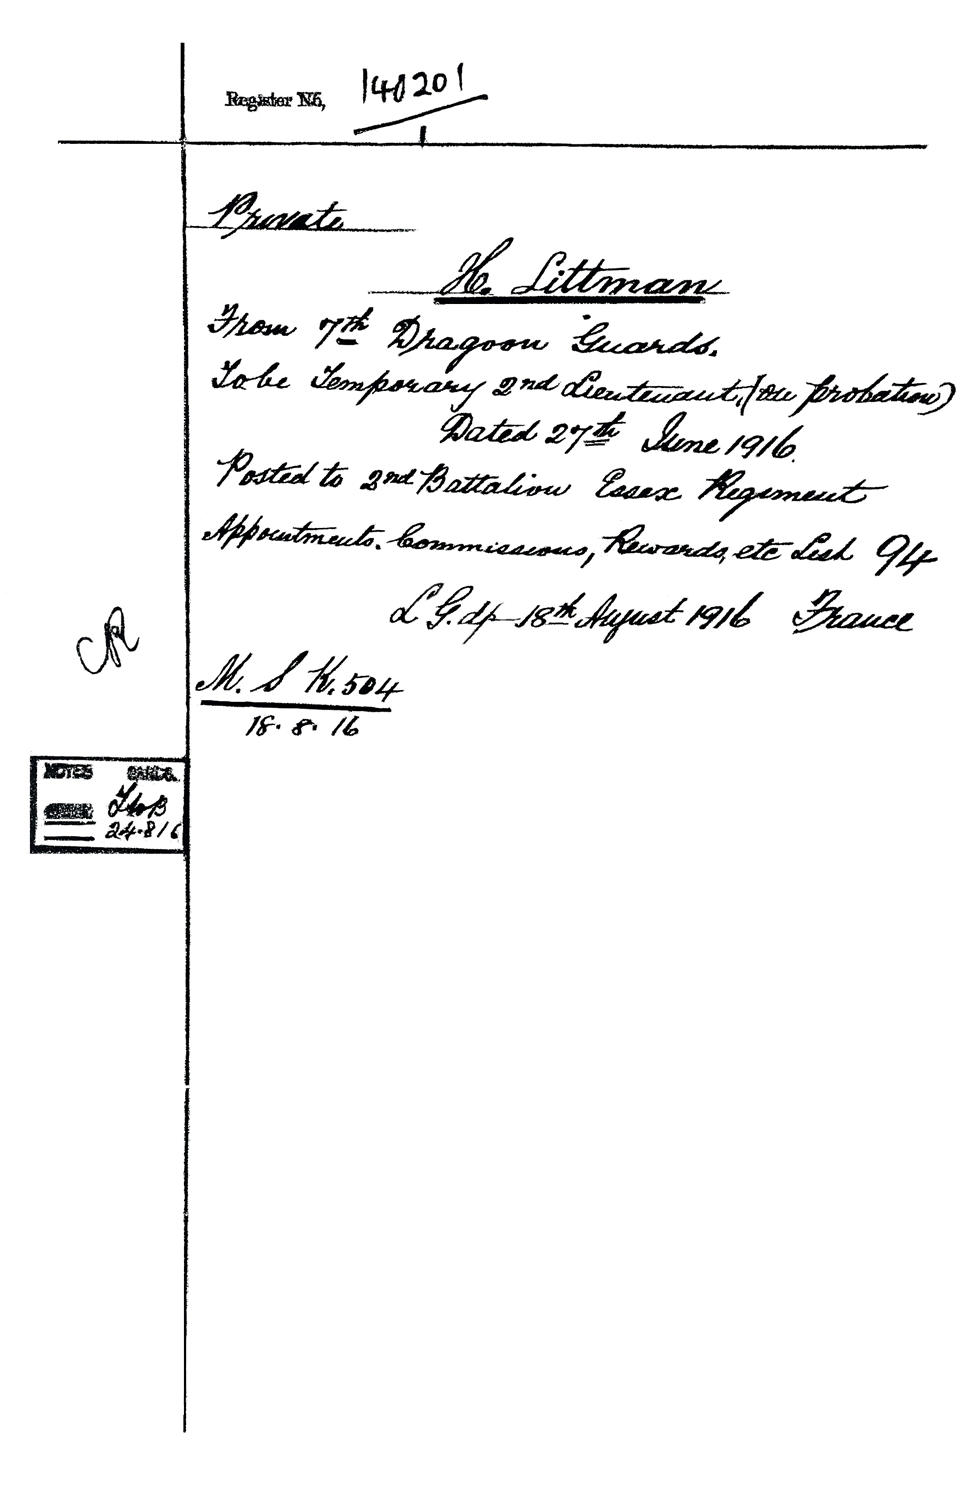 Register No, 140201
1
Private
H. Littman
From 7th Dragoon Guards.
To be Temporary 2nd Lieutenant, (on probation)
Dated 27th June 1916.
Posted to 2nd Battalion Essex Regiment
Appointments. Commissions, Rewards, etc List 94
L G. d/- 18th August 1916 France
CR
M. S K. 504
18. 8. 16
NOTES CARDS.
24.8/6